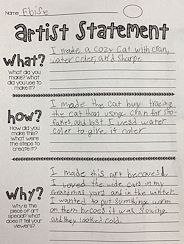 Name: Eloise
Artist Statement
What?
What did you make?
What did you use to make it?
I made a cozy cat with clan,
water coler, and Sharpe
how?
How did you make this?
What were the steps to create it?
I made the cat buy tracing
the cat than using clan for
and last I used water
coler to give it coler
Why?
Why is this piece of art special?
What does it tell your viewers?
I made this art because
I loved the wide cats in my
Grandmas yard and in the winter.
I wanted to put sumthing warm
on them because it was Snowing
and they looked cold.